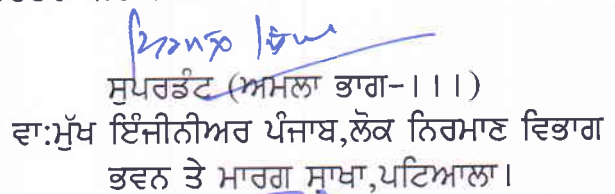 ਸੁਪਰਡੰਟ (ਅਮਲਾ ਭਾਗ-।।।)
ਵਾ:ਮੁੱਖ ਇੰਜੀਨੀਅਰ ਪੰਜਾਬ,ਲੋਕ ਨਿਰਮਾਣ ਵਿਭਾਗ
ਭਵਨ ਤੇ ਮਾਰਗ ਸ਼ਾਖਾ,ਪਟਿਆਲਾ।